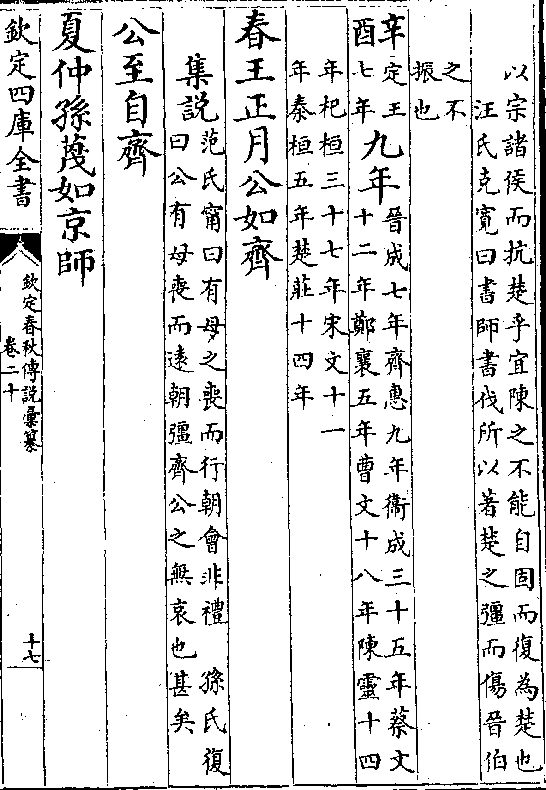 以宗諸侯而抗楚乎宜陳之不能自固而復為楚也
汪氏克寬曰書師書伐所以著楚之彊而傷晉伯
之不
振也
辛定王
酉七年
九年
晉成七年齊惠九年衞成三十五年蔡文
十二年鄭襄五年曹文十八年陳靈十四
年杞桓三十七年宋文十一
年秦桓五年楚莊十四年
春王正月公如齊
集說
范氏甯曰有母之喪而行朝會非禮 孫氏復
曰公有母喪而遠朝彊齊公之無哀也甚矣
公至自齊
夏仲孫蔑如京師
欽定四庫全書
欽定春秋傳說彙纂
卷二十
十七